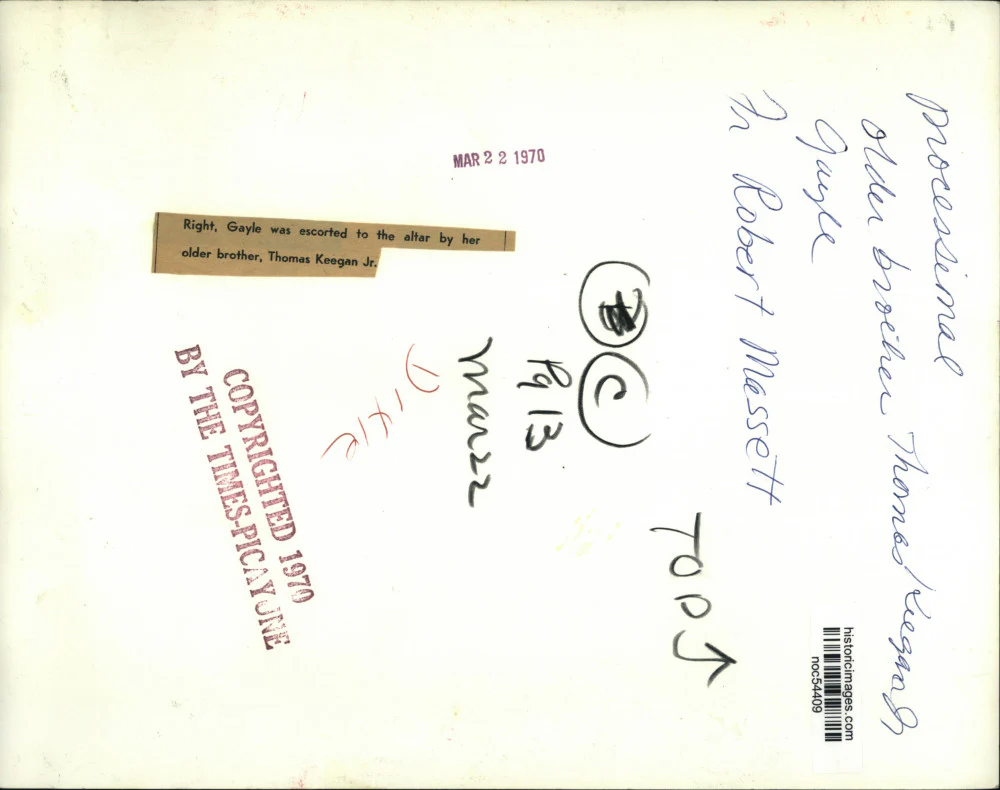 processimal
older brother Thomas Keegan Jr
Gayle
Fr Robert Massett
MAR 2 2 1970
Right, Gayle was escorted to the altar by her
older brother, Thomas Keegan Jr.
C
Pg 13
Mar 22
Dixie
TOP
COPYRIGHTED 1970
BY THE TIMES-PICAYUNE
historicimages.com
noc54409